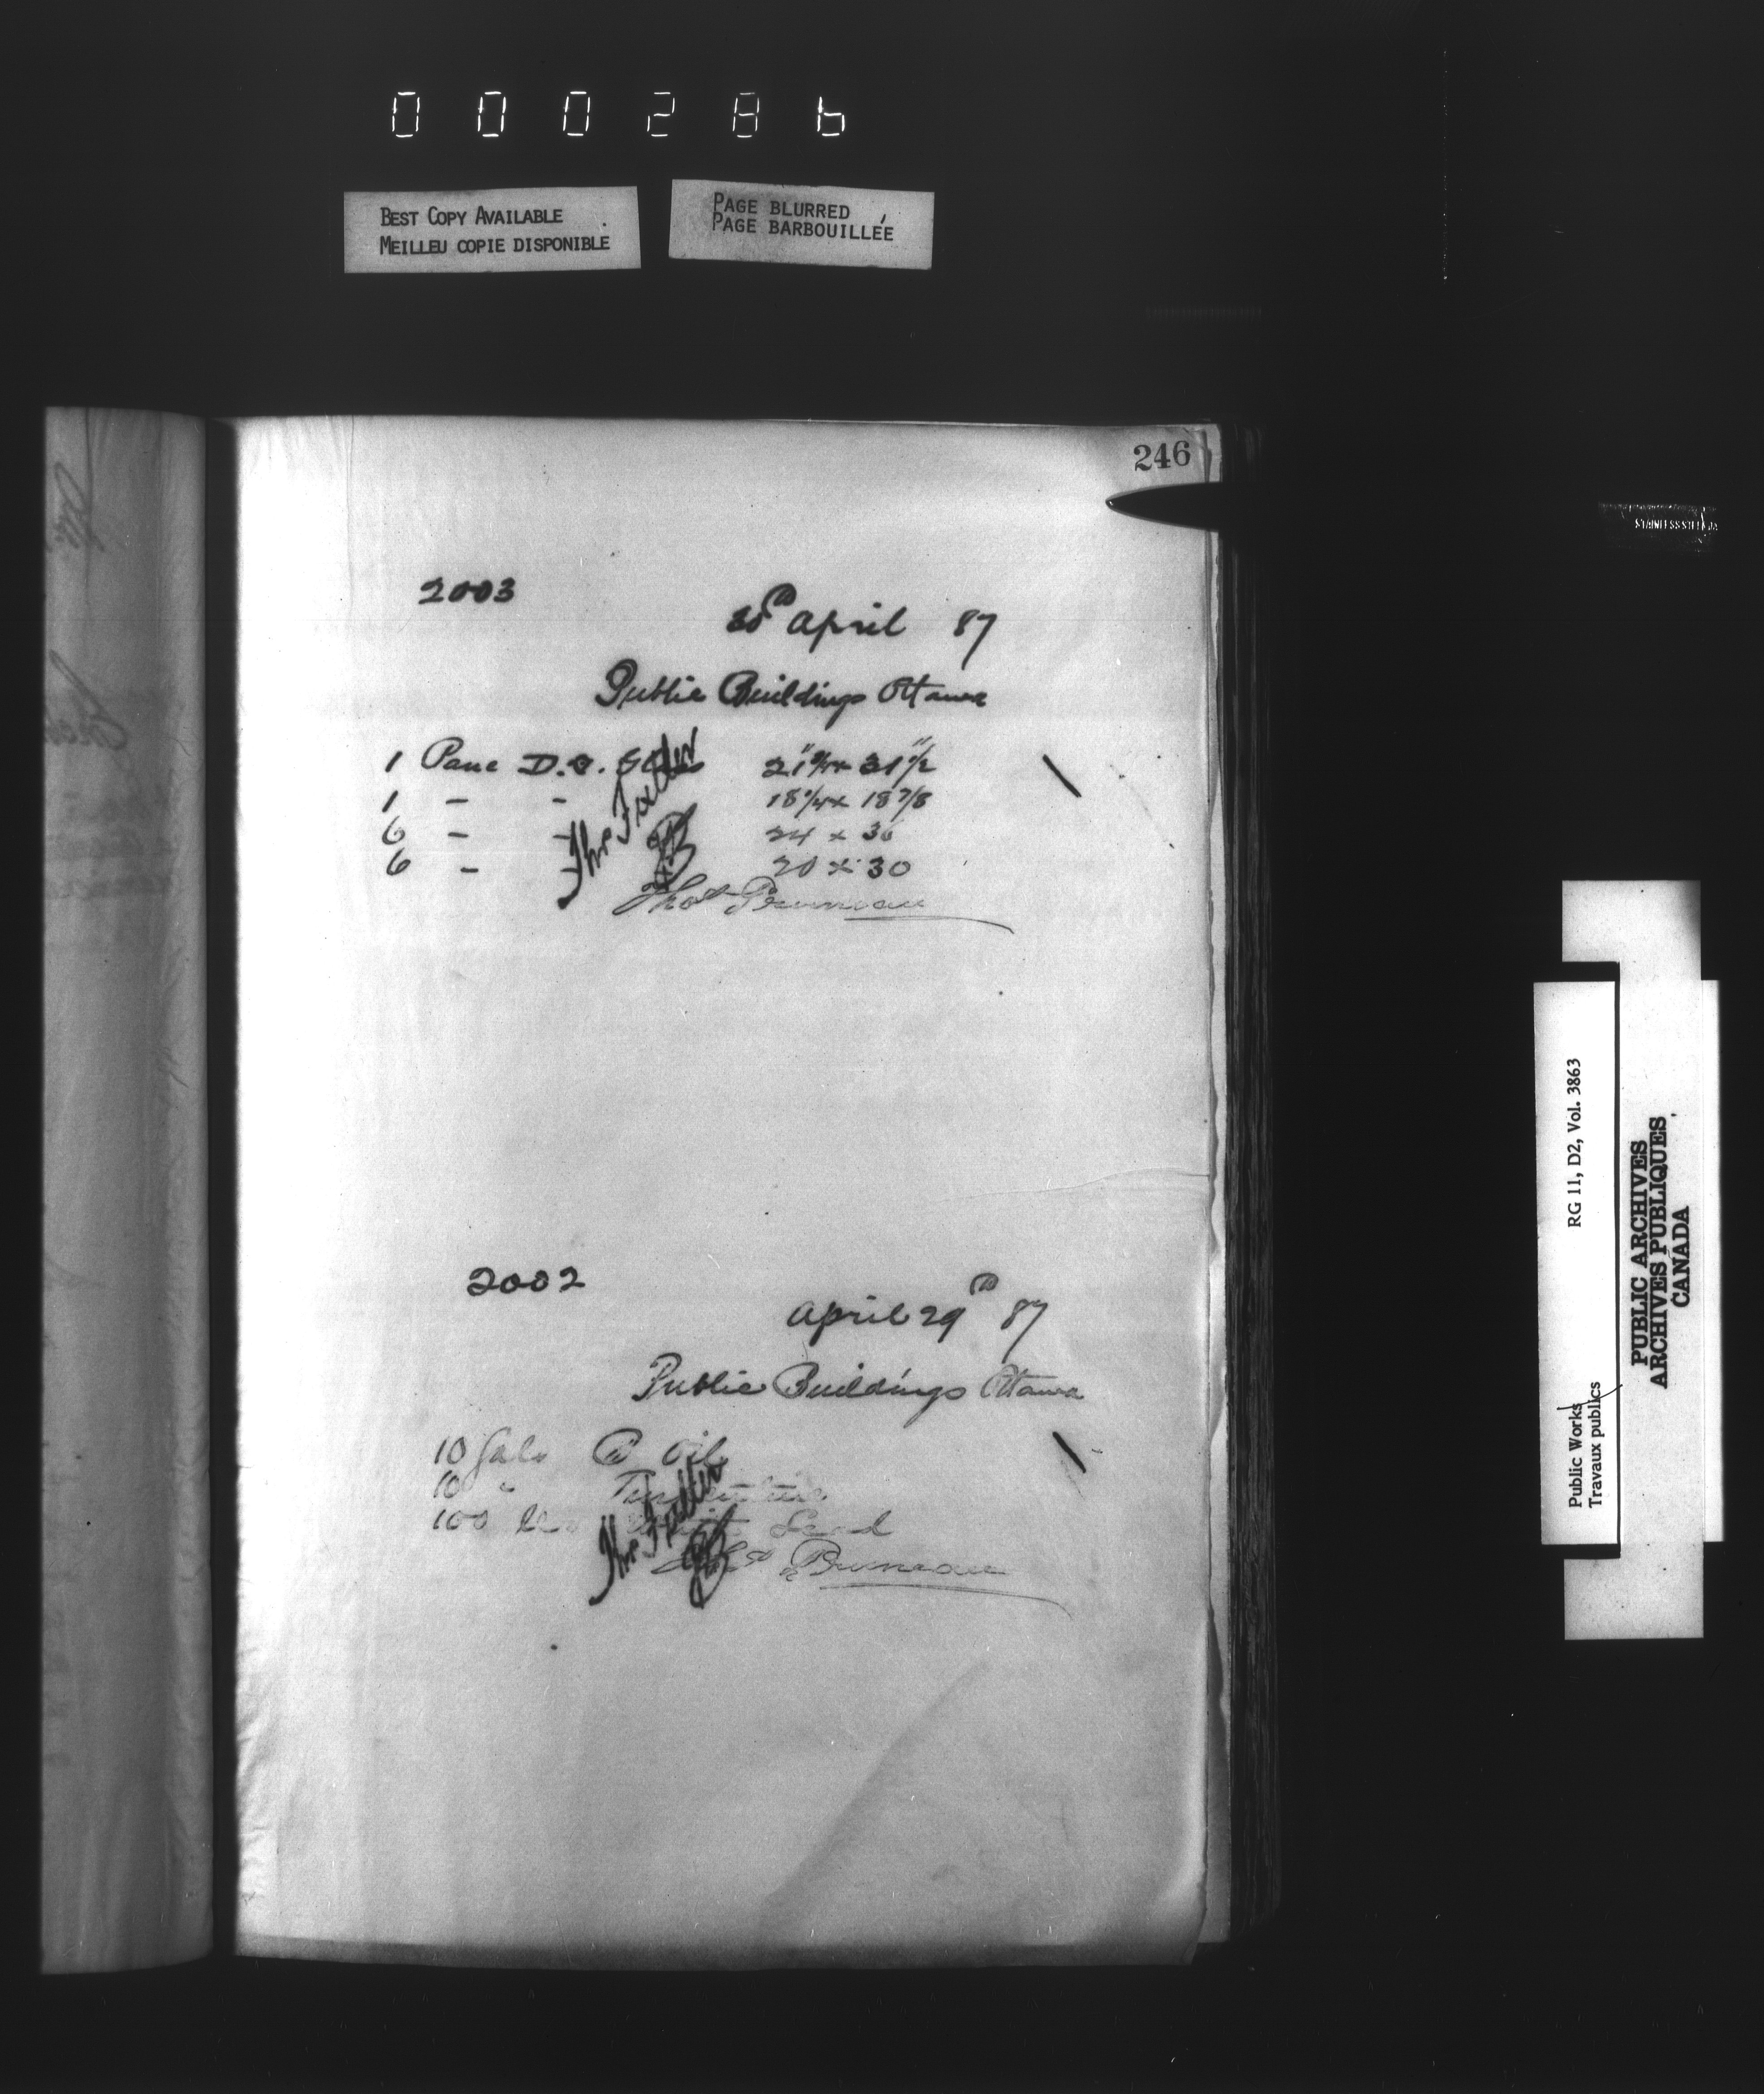 000286
BEST COPY AVAILABLE
MEILLEU COPIE DISPONIBLE
PAGE BLURRED
PAGE BARBOUILLÉE
246
STAINLESS STEEL
2003
30th April 87
Public Buildings Ottawa
1 Pane D.D. Glass 21" x 31"1/2
1 - - 18 1/4 x 18 7/8
6 - - 24 x 30
6 - - 20 x 30
Thos Bruneau
2002
April 29th 87
Public Buildings Ottawa
10 Gals B Oil
10 " Turpentine
100 lbs White Lead
Thos Bruneau
RG 11, D2, Vol. 3863
Public Works
Travaux publics
PUBLIC ARCHIVES
ARCHIVES PUBLIQUES
CANADA